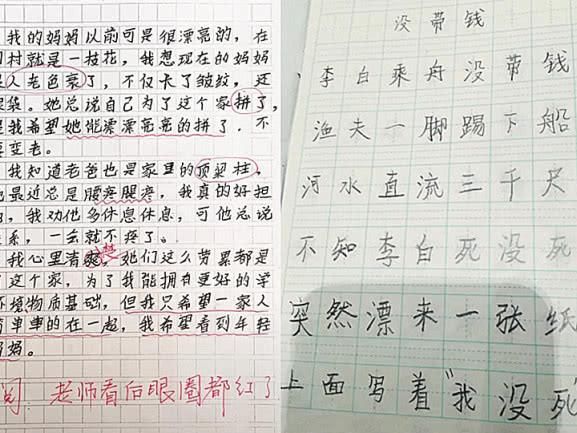 我的妈妈以前可是很漂亮的，在
村就是一枝花，我想现在的妈妈
人老色衰了，不仅卡了皱纹，还
袋。她总说自己为了这个家拼了，
是我希望她能漂漂亮亮的拼了．不
要变老。
我知道老爸也是家里的顶梁柱，
最近总是腰疼腿疼，我真的好担
，我劝他多休息休息，可他总说
系，一会就不疼了。
我心里清楚，她们这么劳累都是
了这个家，为了我能拥有更好的学
环境物质基础，但我只希望一家人
简单单的在一起，我希望看到年轻
妈妈。
阅 老师看后眼圈都红了
没带钱
李白乘舟没带钱
渔夫一脚踢下船
河水直流三千尺
不知李白死没死
突然漂来一张纸
上面写着"我没死